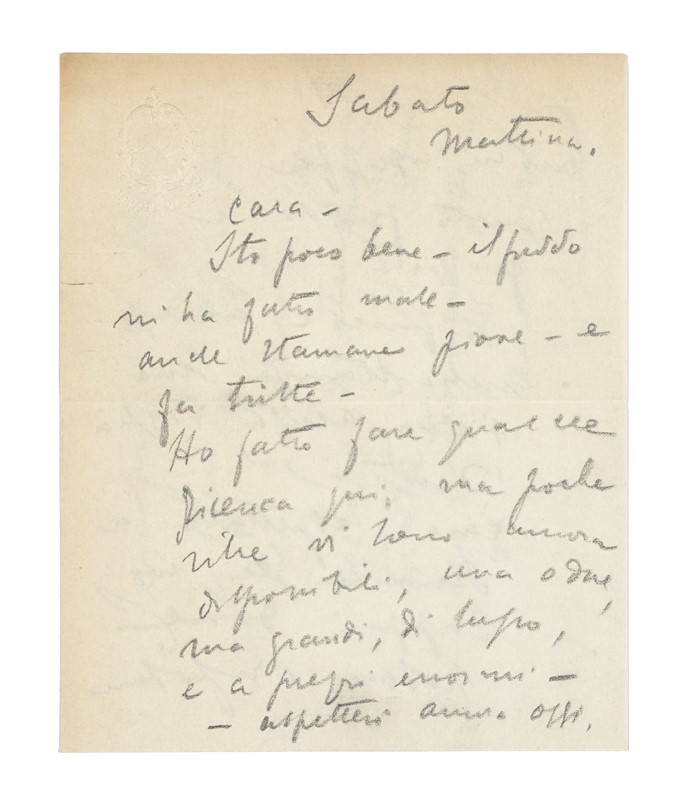 Sabato
Mattina.
cara –
Sto poco bene – il freddo
mi ha fatto male –
anche stamane piove – e
fa triste –
Ho fatto fare qualche
ricerca qui, ma poche
ville vi sono ancora
disponibili, una o due,
ma grandi, di lusso,
e a prezzi enormi –
– aspetterò ancora oggi,